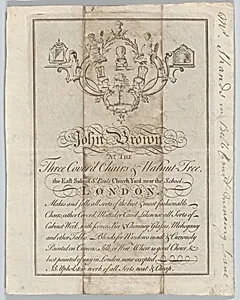 John Brown
AT THE
Three Cover'd Chairs & Walnut-Tree,
the East Side of St. Pauls Church Yard near the School,
LONDON.
Makes and sells all sorts of the best & most fashionable
Chairs, either Cover'd, Matted or Cane'd, likewise all Sorts of
Cabinet Work, with Sconces, Pier & Chimney Glasses, Mahogany
and other Tables. Blinds for Windows made & Curiously
Painted on Canvas, Silk, or Wire. Where is good Choice &
best painted of any in London, none excepted
& Upholsterers work of all Sorts neat & Cheap.